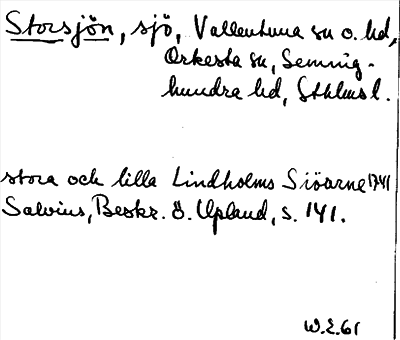 Storsjön, sjö, Vallentuna sn o. hd,
Orkesta sn, Seming-
hundra hd, Sthlms l.
stora och lilla Lindholms Siöarne 1741
Salvius, Beskr. ö. Upland, s. 141.
W.E.61